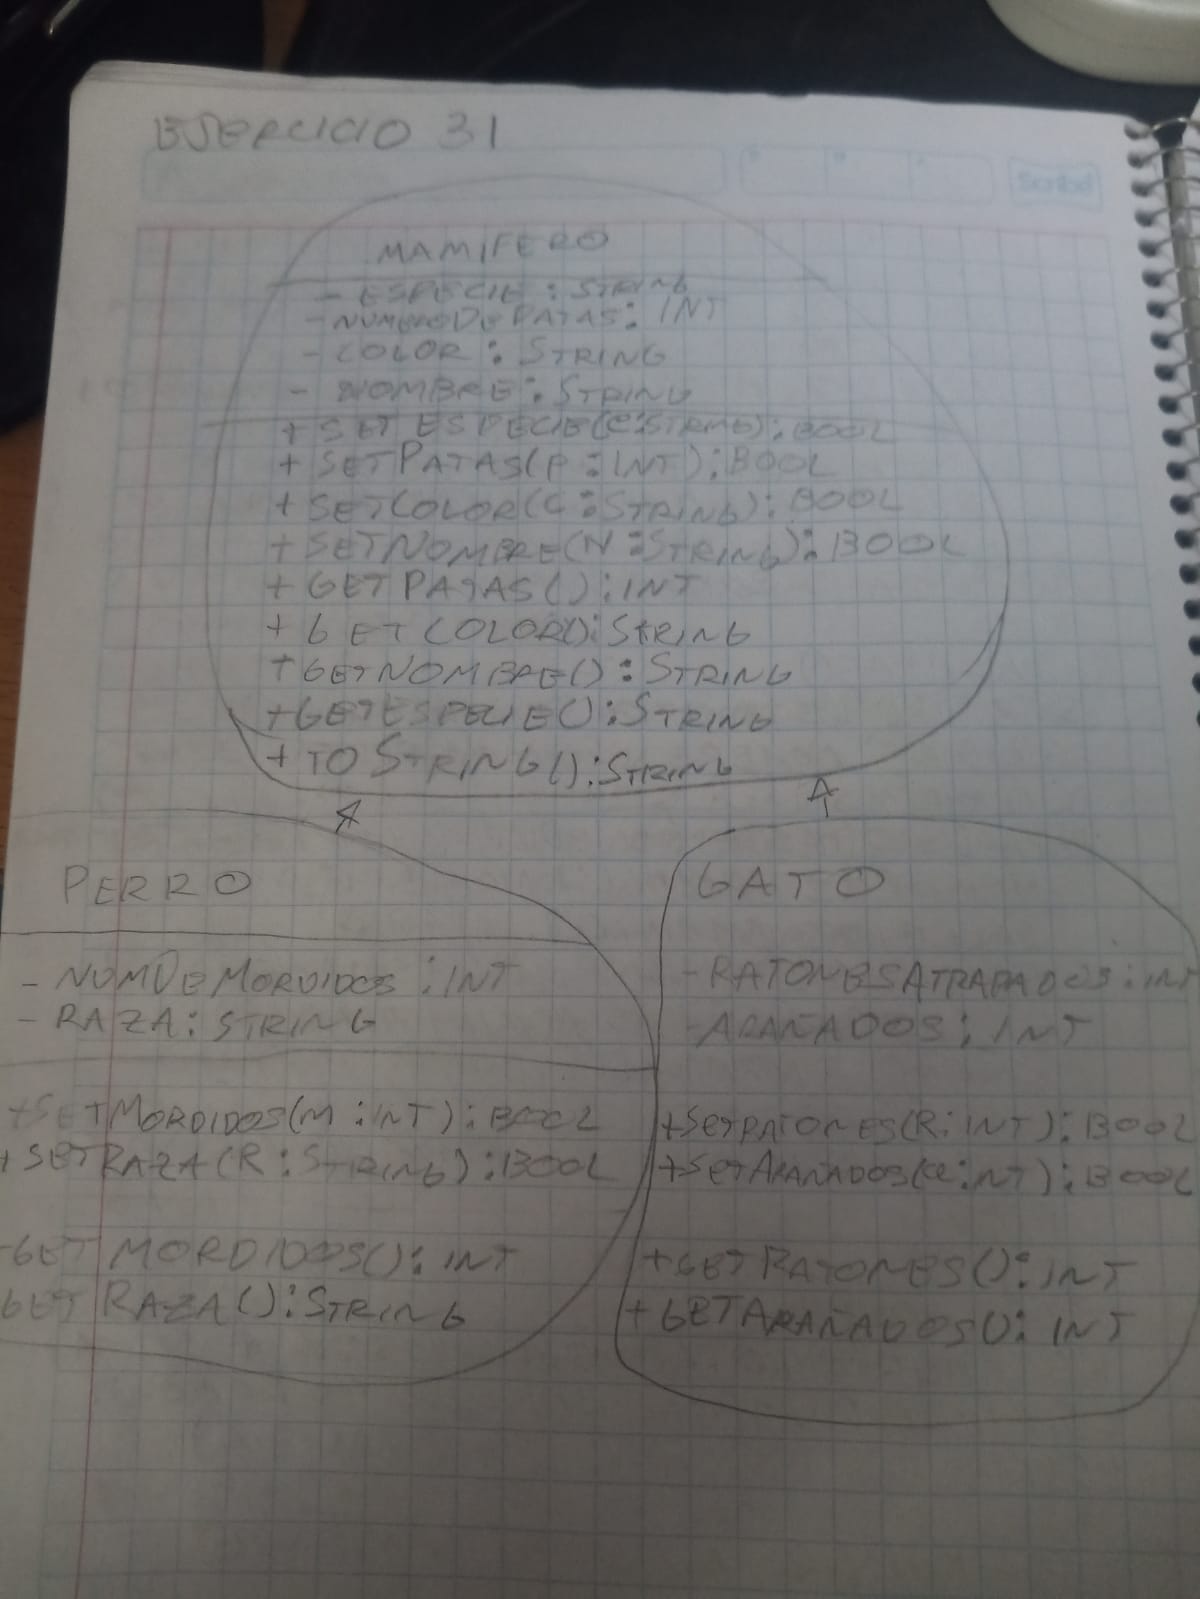 EJERCICIO 31
Scribe
MAMIFERO
- ESPECIE : STRING
- NUMERODEPATAS: INT
- COLOR : STRING
- NOMBRE : STRING
+ SETESPECIE(E:STRING): BOOL
+ SETPATAS(P : INT): BOOL
+ SETCOLOR(C : STRING): BOOL
+ SETNOMBRE(N : STRING): BOOL
+ GETPATAS(): INT
+ GETCOLOR(): STRING
+ GETNOMBRE() : STRING
+ GETESPECIE(): STRING
+ TO STRING(): STRING
PERRO
- NUMDEMORDIDOS : INT
- RAZA: STRING
+SETMORDIDOS(M : INT): BOOL
+ SETRAZA(R : STRING): BOOL
-GET MORDIDOS(): INT
GET RAZA(): STRING
GATO
- RATONESATRAPADOS: INT
-ARAÑADOS: INT
+SETRATONES(R: INT): BOOL
+SETARAÑADOS(a: INT): BOOL
+GETRATONES(): INT
+ GETARAÑADOS(): INT